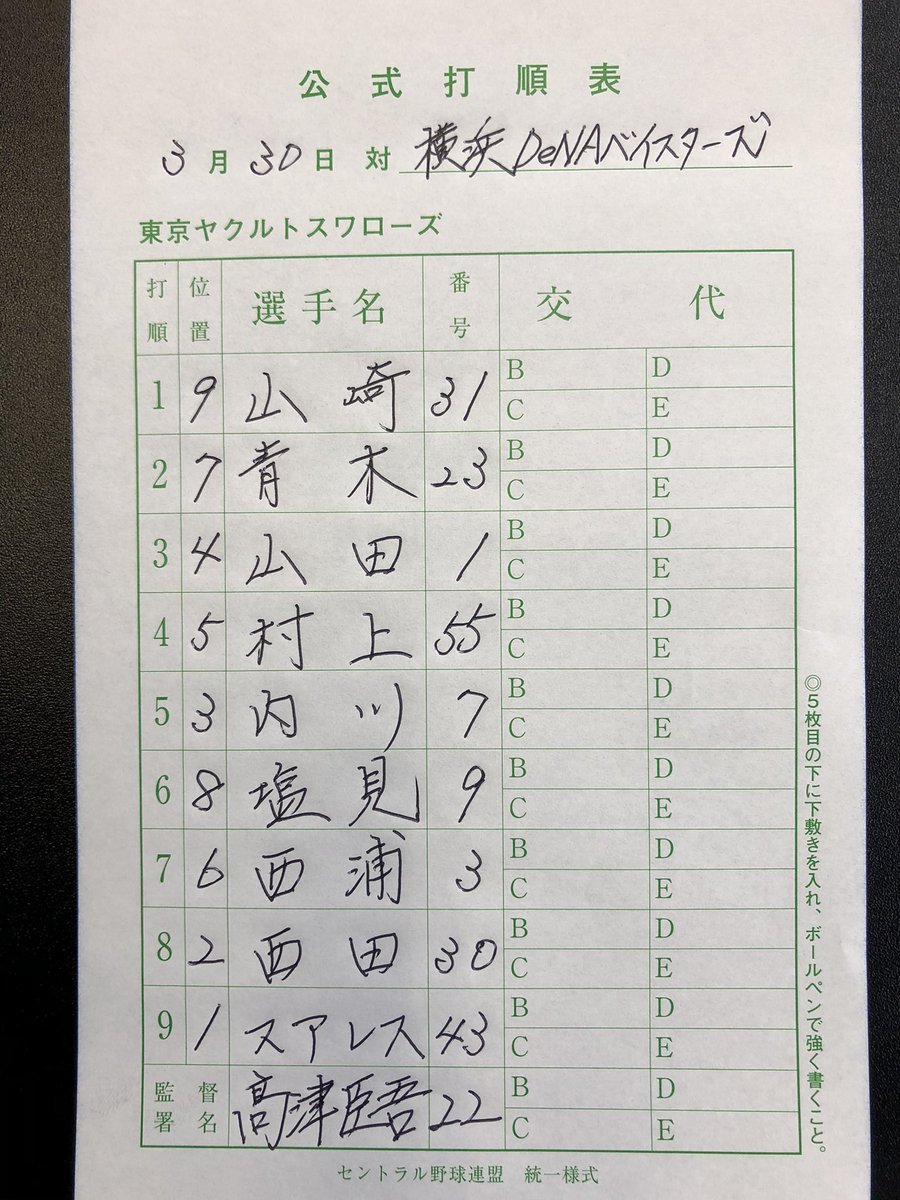 公式打順表
3月30日 対 横浜DeNAベイスターズ
東京ヤクルトスワローズ
打順 位置 選手名 番号 交代
1 9 山崎 31 B D
C E
2 7 青木 23 B D
C E
3 4 山田 1 B D
C E
4 5 村上 55 B D
C E
5 3 内川 7 B D
C E
6 8 塩見 9 B D
C E
7 6 西浦 3 B D
C E
8 2 西田 30 B D
C E
9 1 スアレス 43 B D
C E
監督署名 高津臣吾 22 B D
C E
◎5枚目の下に下敷きを入れ、ボールペンで強く書くこと。
セントラル野球連盟 統一様式